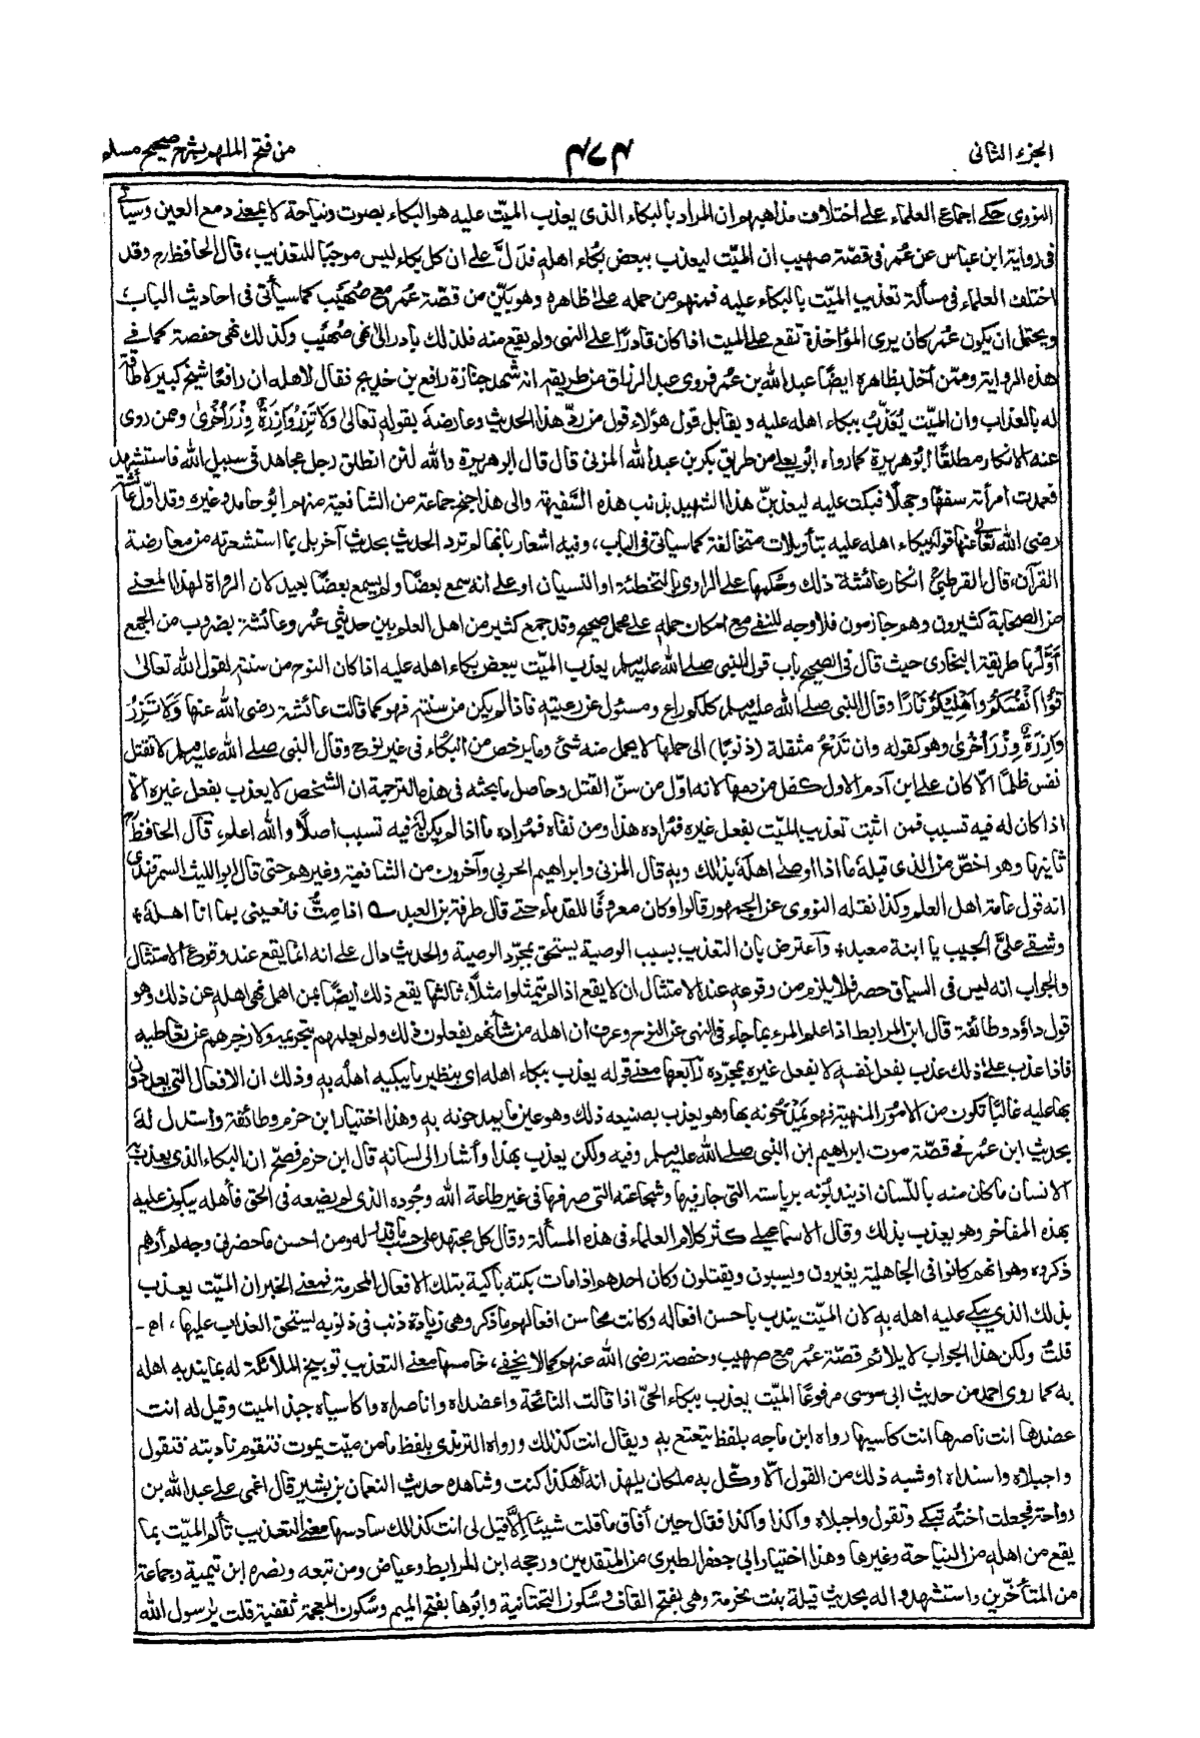 الجزء الثانى
٤٧٣
من فتح الملهم بشرح صحيح مسلم
النووى حكى اجماع العلماء على اختلاف مذاهبهم ان المراد بالبكاء الذى يعذب الميّت عليه هو البكاء بصوت ونياحة لا بمجرد دمع العين وسيأتى
فى رواية ابن عباس عن عمر فى قصّة صهيب ان الميّت ليعذب ببعض بكاء اهله فدلّ على ان كل بكاء ليس موجبًا للتعذيب، قال الحافظ رح وقد
اختلف العلماء فى مسألة تعذيب الميّت بالبكاء عليه فمنهم من حمله على ظاهره وهو بيّن من قصّة عمر مع صُهَيْب كما سيأتى فى احاديث الباب
ويحتمل ان يكون عمر كان يرى المؤاخذة تقع على الميت اذا كان قادرًا على النهى ولم يقع منه فلذلك بادر الى نهى صُهَيْب وكذلك نهى حفصة كما فى
هذه الرواية وممّن أخذ بظاهره ايضًا عبد الله بن عمر فروى عبد الرزاق من طريقه انه شهد جنازة رافع بن خديج فقال لاهله ان رافعًا شيخ كبير لا طاقة
له بالعذاب وان الميّت يُعَذَّبُ ببكاء اهله عليه ويقابل قول هؤلاء قول من ردّ هذا الحديث وعارضه بقوله تعالىٰ وَلَا تَزِرُ وَازِرَةٌ وِزْرَ أُخْرَىٰ وممن روى
عنه الانكار مطلقًا ابو هريرة كما رواه ابو يعلى من طريق بكر بن عبد الله المزنى قال قال ابو هريرة والله لئن انطلق رجل مجاهد فى سبيل الله فاستشهد
فعمدت امرأته سفهًا وجهلًا فبكت عليه ليعذبنّ هذا الشهيد بذنب هذه السَّفيهة والى هذا جنح جماعة من الشافعية منهم ابو حامد وغيره وقد اوّل عائشة
رضى الله تعالىٰ عنها قوله ببكاء اهله عليه بتأويلات متخالفة كما سيأتى فى الباب، وفيه اشعار بانها لم ترد الحديث بحديث آخر بل بما استشعرته من معارضة
القرآن، قال القرطبىؒ انكار عائشة ذلك وحكمها على الراوى بالتخطئة او النسيان او على انه سمع بعضًا ولم يسمع بعضًا بعيد لان الرواة لهذا المعنى
من الصحابة كثيرون وهم جازمون فلا وجه للنفى مع امكان حمله على محمل صحيح وقد جمع كثير من اهل العلم بين حديثى عمر وعائشة بضروب من الجمع
أوّلها طريقة البخارى حيث قال فى الصحيح باب قول النبى صلى الله عليه وسلم يعذب الميّت ببعض بكاء اهله عليه اذا كان النوح من سنته لقول الله تعالىٰ
قُوْا أَنْفُسَكُمْ وَأَهْلِيْكُمْ نَارًا وقال النبى صلى الله عليه وسلم كلكم راع ومسئول عن رعيته فاذا لم يكن من سنته فهو كما قالت عائشة رضى الله عنها وَلَا تَزِرُ
وَازِرَةٌ وِزْرَ أُخْرَىٰ وهو كقوله وان تَدْعُ مثقلة (ذنوبًا) الى حملها لا يحمل منه شئ وما يرخص من البكاء فى غير نوح وقال النبى صلى الله عليه وسلم لا تقتل
نفس ظلمًا الّا كان على ابن آدم الاول كفل من دمها لانه اوّل من سنّ القتل وحاصل ما بحثه فى هذه الترجمة ان الشخص لا يعذب بفعل غيره الا
اذا كان له فيه تسبب فمن اثبت تعذيب الميّت بفعل غيره فمُراده هذا ومن نفاه فمُراده ما اذا لم يكن له فيه تسبب اصلًا والله اعلم، قال الحافظؒ
ثانيها وهو اخصّ من الذى قبله ما اذا اوصىٰ اهله بذلك وبه قال المزنى وابراهيم الحربى وآخرون من الشافعية وغيرهم حتى قال ابو الليث السمرقندى
انه قول عامة اهل العلم وكذا نقله النووى عن الجمهور قالوا وكان معروفًا للقدماء حتى قال طرفة بن العبد ؎ اذا مِتُّ فانعينى بما انا اهله ٭
وشقى علىَّ الجيب يا ابنة معبد ٭ وآعترض بان التعذيب بسبب الوصية يستحق بمجرّد الوصية والحديث دال على انه انما يقع عند وقوع الامتثال
والجواب انه ليس فى السياق حصر فلا يلزم من وقوعه عند الامتثال ان لا يقع اذا لم يمتثلوا مثلًا، ثالثها يقع ذلك ايضًا لمن اهمل نهى اهله عن ذلك وهو
قول داؤد وطائفة قال ابن المرابط اذا علم المرء بما جاء فى النهى عن النوح وعرف ان اهله من شأنهم يفعلون ذلك ولم يعلمهم بتحريمه ولا زجرهم عن تعاطيه
فاذا عذب على ذلك عذب بفعل نفسه لا بفعل غيره بمجرّده رابعها معنى قوله يعذب ببكاء اهله اى بنظير ما يبكيه اهله به وذلك ان الافعال التى يعددون
بها عليه غالبًا تكون من الامور المنهية فهم يَمْدَحُونَه بها وهو يعذب بصنيعه ذلك وهو عين ما يمدحونه به وهذا اختيار ابن حزم وطائفة واستدل له
بحديث ابن عمر فى قصّة موت ابراهيم ابن النبى صلى الله عليه وسلم وفيه ولكن يعذب بهذا وأشار الى لسانه قال ابن حزم فصّح ان البكاء الذى يعذب به
الانسان ما كان منه باللّسان اذ يندبونه برياسته التى جار فيها وشجاعته التى صرفها فى غير طاعة الله وجُوده الذى لم يضعه فى الحق فأهله يبكون عليه
بهذه المفاخر وهو يعذب بذلك وقال الاسماعيلى كثر كلام العلماء فى هذه المسألة وقال كل مجتهد على حسب ما قدر له ومن احسن ما حضرنى وجه لم أرهم
ذكروه وهو انهم كانوا فى الجاهلية يغيرون ويسبون ويقتلون وكان احدهم اذا مات بكته باكية بتلك الافعال المحرمة فمعنى الخبر ان الميّت يعذب
بذلك الذى يبكى عليه اهله به لان الميّت يندب باحسن افعاله وكانت محاسن افعالهم ما ذكر وهى زيادة ذنب فى ذنوبه يستحق العذاب عليها، اھ -
قلتُ ولكن هذا الجواب لا يلائم قصّة عمر مع صهيب وحفصة رضى الله عنهم كما لا يخفى، خامسها معنى التعذيب توبيخ الملائكة له بما يندبه اهله
به كما روى احمد من حديث ابى موسى مرفوعًا الميّت يعذب ببكاء الحىّ اذا قالت النائحة واعضداه واناصراه واكاسياه جبذ الميت وقيل له انت
عضدها انت ناصرها انت كاسيها رواه ابن ماجه بلفظ يتعتع به ويقال انت كذلك ورواه الترمذى بلفظ ما من ميّت يموت فتقوم نادبته فتقول
واجبلاه واسنداه او شبه ذلك من القول الّا وكّل به ملكان يلهذانه أهكذا كنت وشاهده حديث النعمان بن بشير قال اغمى على عبد الله بن
رواحة فجعلت اخته تبكى وتقول واجبلاه واكذا واكذا فقال حين أفاق ما قلت شيئًا إلَّا قيل لى انت كذلك سادسها معنى التعذيب تألم الميّت بما
يقع من اهله من النياحة وغيرها وهذا اختيار ابى جعفر الطبرى من المتقدمين ورجحه ابن المرابط وعياض ومن تبعه ونصره ابن تيمية وجماعة
من المتأخّرين واستشهدوا له بحديث قيلة بنت مخرمة وهى بفتح القاف وسُكون التحتانية وابُوها بفتح الميم وسُكون المعجمة ثقفية قلت يارسول الله